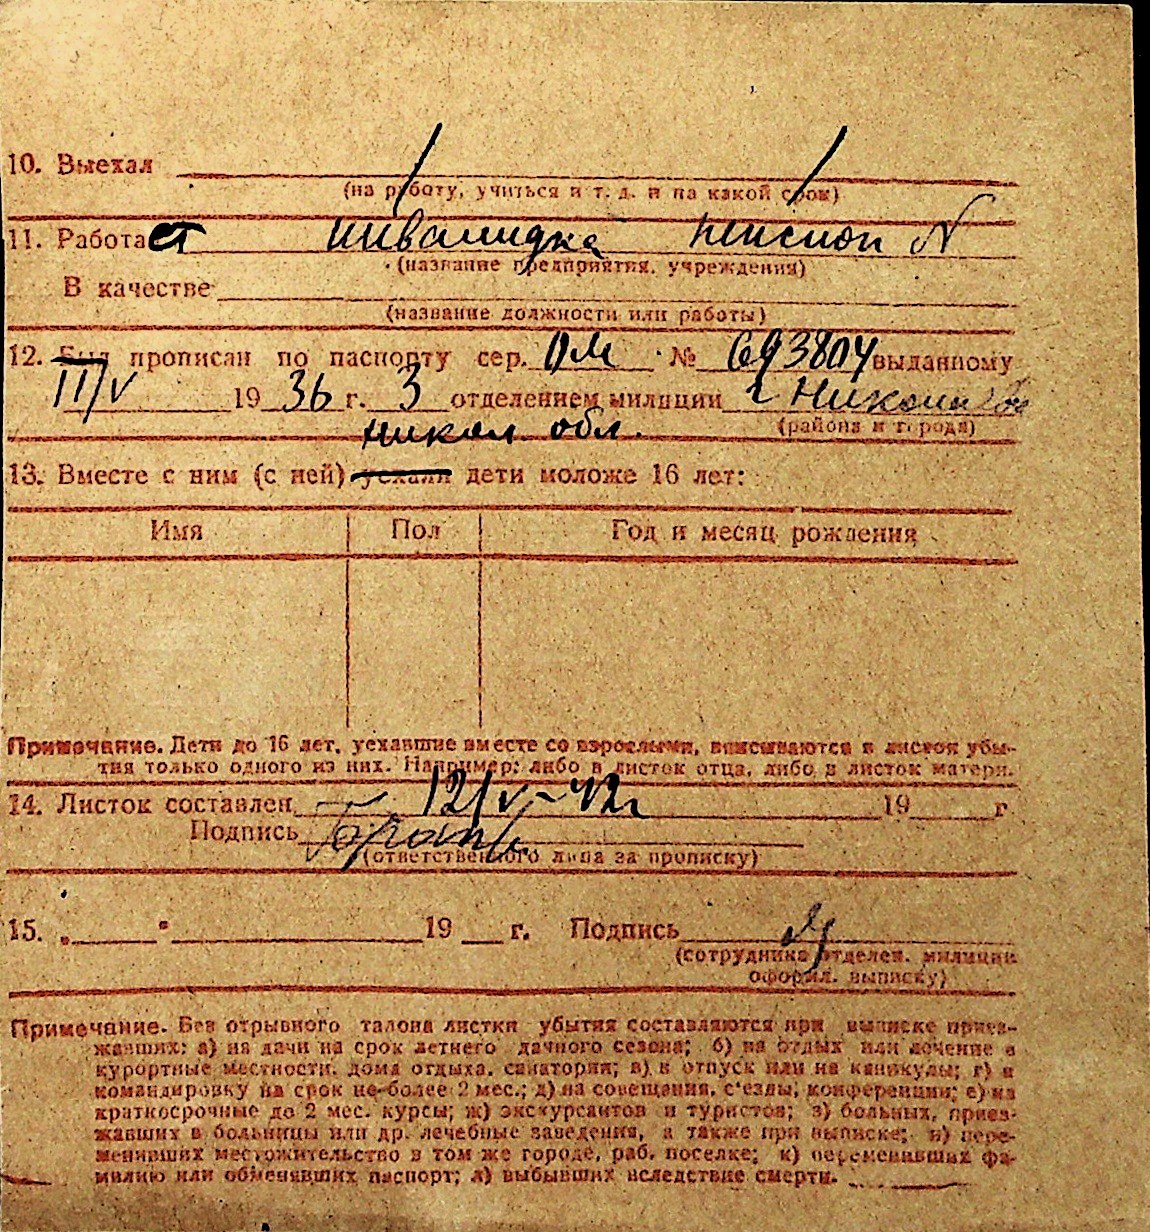 10. Выехал
(на работу, учиться и т. д. и на какой срок)
11. Работает инвалидка пенсион N
(название предприятия, учреждения)
В качестве
(название должности или работы)
12. Был прописан по паспорту сер. ОМ № 693804 выданному
II/V 1936 г. 3 отделением милиции г Николаев
никол. обл. (района и города)
13. Вместе с ним (с ней) уехали дети моложе 16 лет:
Имя Пол Год и месяц рождения
Примечание. Дети до 16 лет, уехавшие вместе со взрослыми, вписываются в листок убы-
тия только одного из них. Например: либо в листок отца, либо в листок матери.
14. Листок составлен 12/V-42г 19 г
Подпись
(ответственного лица за прописку)
15. „ " 19 г. Подпись
(сотрудника отделен. милиции
оформл. выписку)
Примечание. Без отрывного талона листки убытия составляются при выписке приез-
жавших: а) на дачи на срок летнего дачного сезона; б) на отдых или лечение в
курортные местности, дома отдыха, санатории; в) в отпуск или на каникулы; г) в
командировку на срок не более 2 мес.; д) на совещания, с'езды, конференции; е) на
краткосрочные до 2 мес. курсы; ж) экскурсантов и туристов; з) больных, приез-
жавших в больницы или др. лечебные заведения, а также при выписке; и) пере-
менивших местожительство в том же городе, раб. поселке; к) переменивших фа-
милию или обменявших паспорт; л) выбывших вследствие смерти.